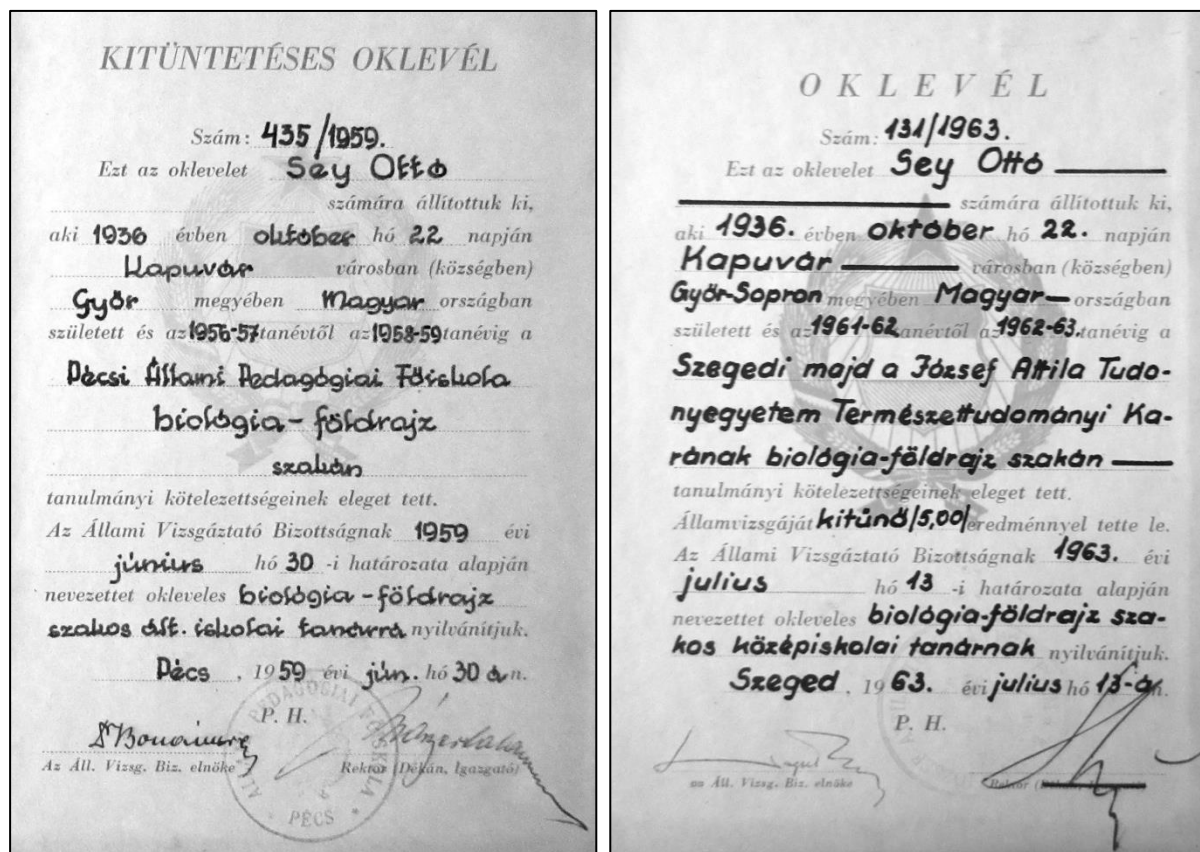 KITÜNTETÉSES OKLEVÉL
Szám: 435/1959.
Ezt az oklevelet Sey Ottó
számára állítottuk ki,
aki 1936 évben október hó 22 napján
Kapuvár városban (községben)
Győr megyében Magyar országban
született és az 1956-57 tanévtől az 1958-59 tanévig a
Pécsi Állami Pedagógiai Főiskola
biológia - földrajz
szakán
tanulmányi kötelezettségeinek eleget tett.
Az Állami Vizsgáztató Bizottságnak 1959 évi
június hó 30 -i határozata alapján
nevezettet okleveles biológia - földrajz
szakos ált. iskolai tanárrá nyilvánítjuk.
Pécs, 1959 évi jún. hó 30 án.
P. H.
Az Áll. Vizsg. Biz. elnöke Rektor (Dékán, Igazgató)
PÉCS
OKLEVÉL
Szám: 131/1963.
Ezt az oklevelet Sey Ottó
számára állítottuk ki,
aki 1936. évben október hó 22. napján
Kapuvár városban (községben)
Győr-Sopron megyében Magyar- országban
született és az 1961-62 tanévtől az 1962-63. tanévig a
Szegedi majd a József Attila Tudo-
nyegyetem Természettudományi Ka-
rának biológia-földrajz szakán
tanulmányi kötelezettségeinek eleget tett.
Államvizsgáját kitünő/5,00/ eredménnyel tette le.
Az Állami Vizsgáztató Bizottságnak 1963. évi
julius hó 13 -i határozata alapján
nevezettet okleveles biológia-földrajz sza-
kos középiskolai tanárnak nyilvánítjuk.
Szeged, 1963. évi julius hó 13-án.
P. H.
az Áll. Vizsg. Biz. elnöke Rektor